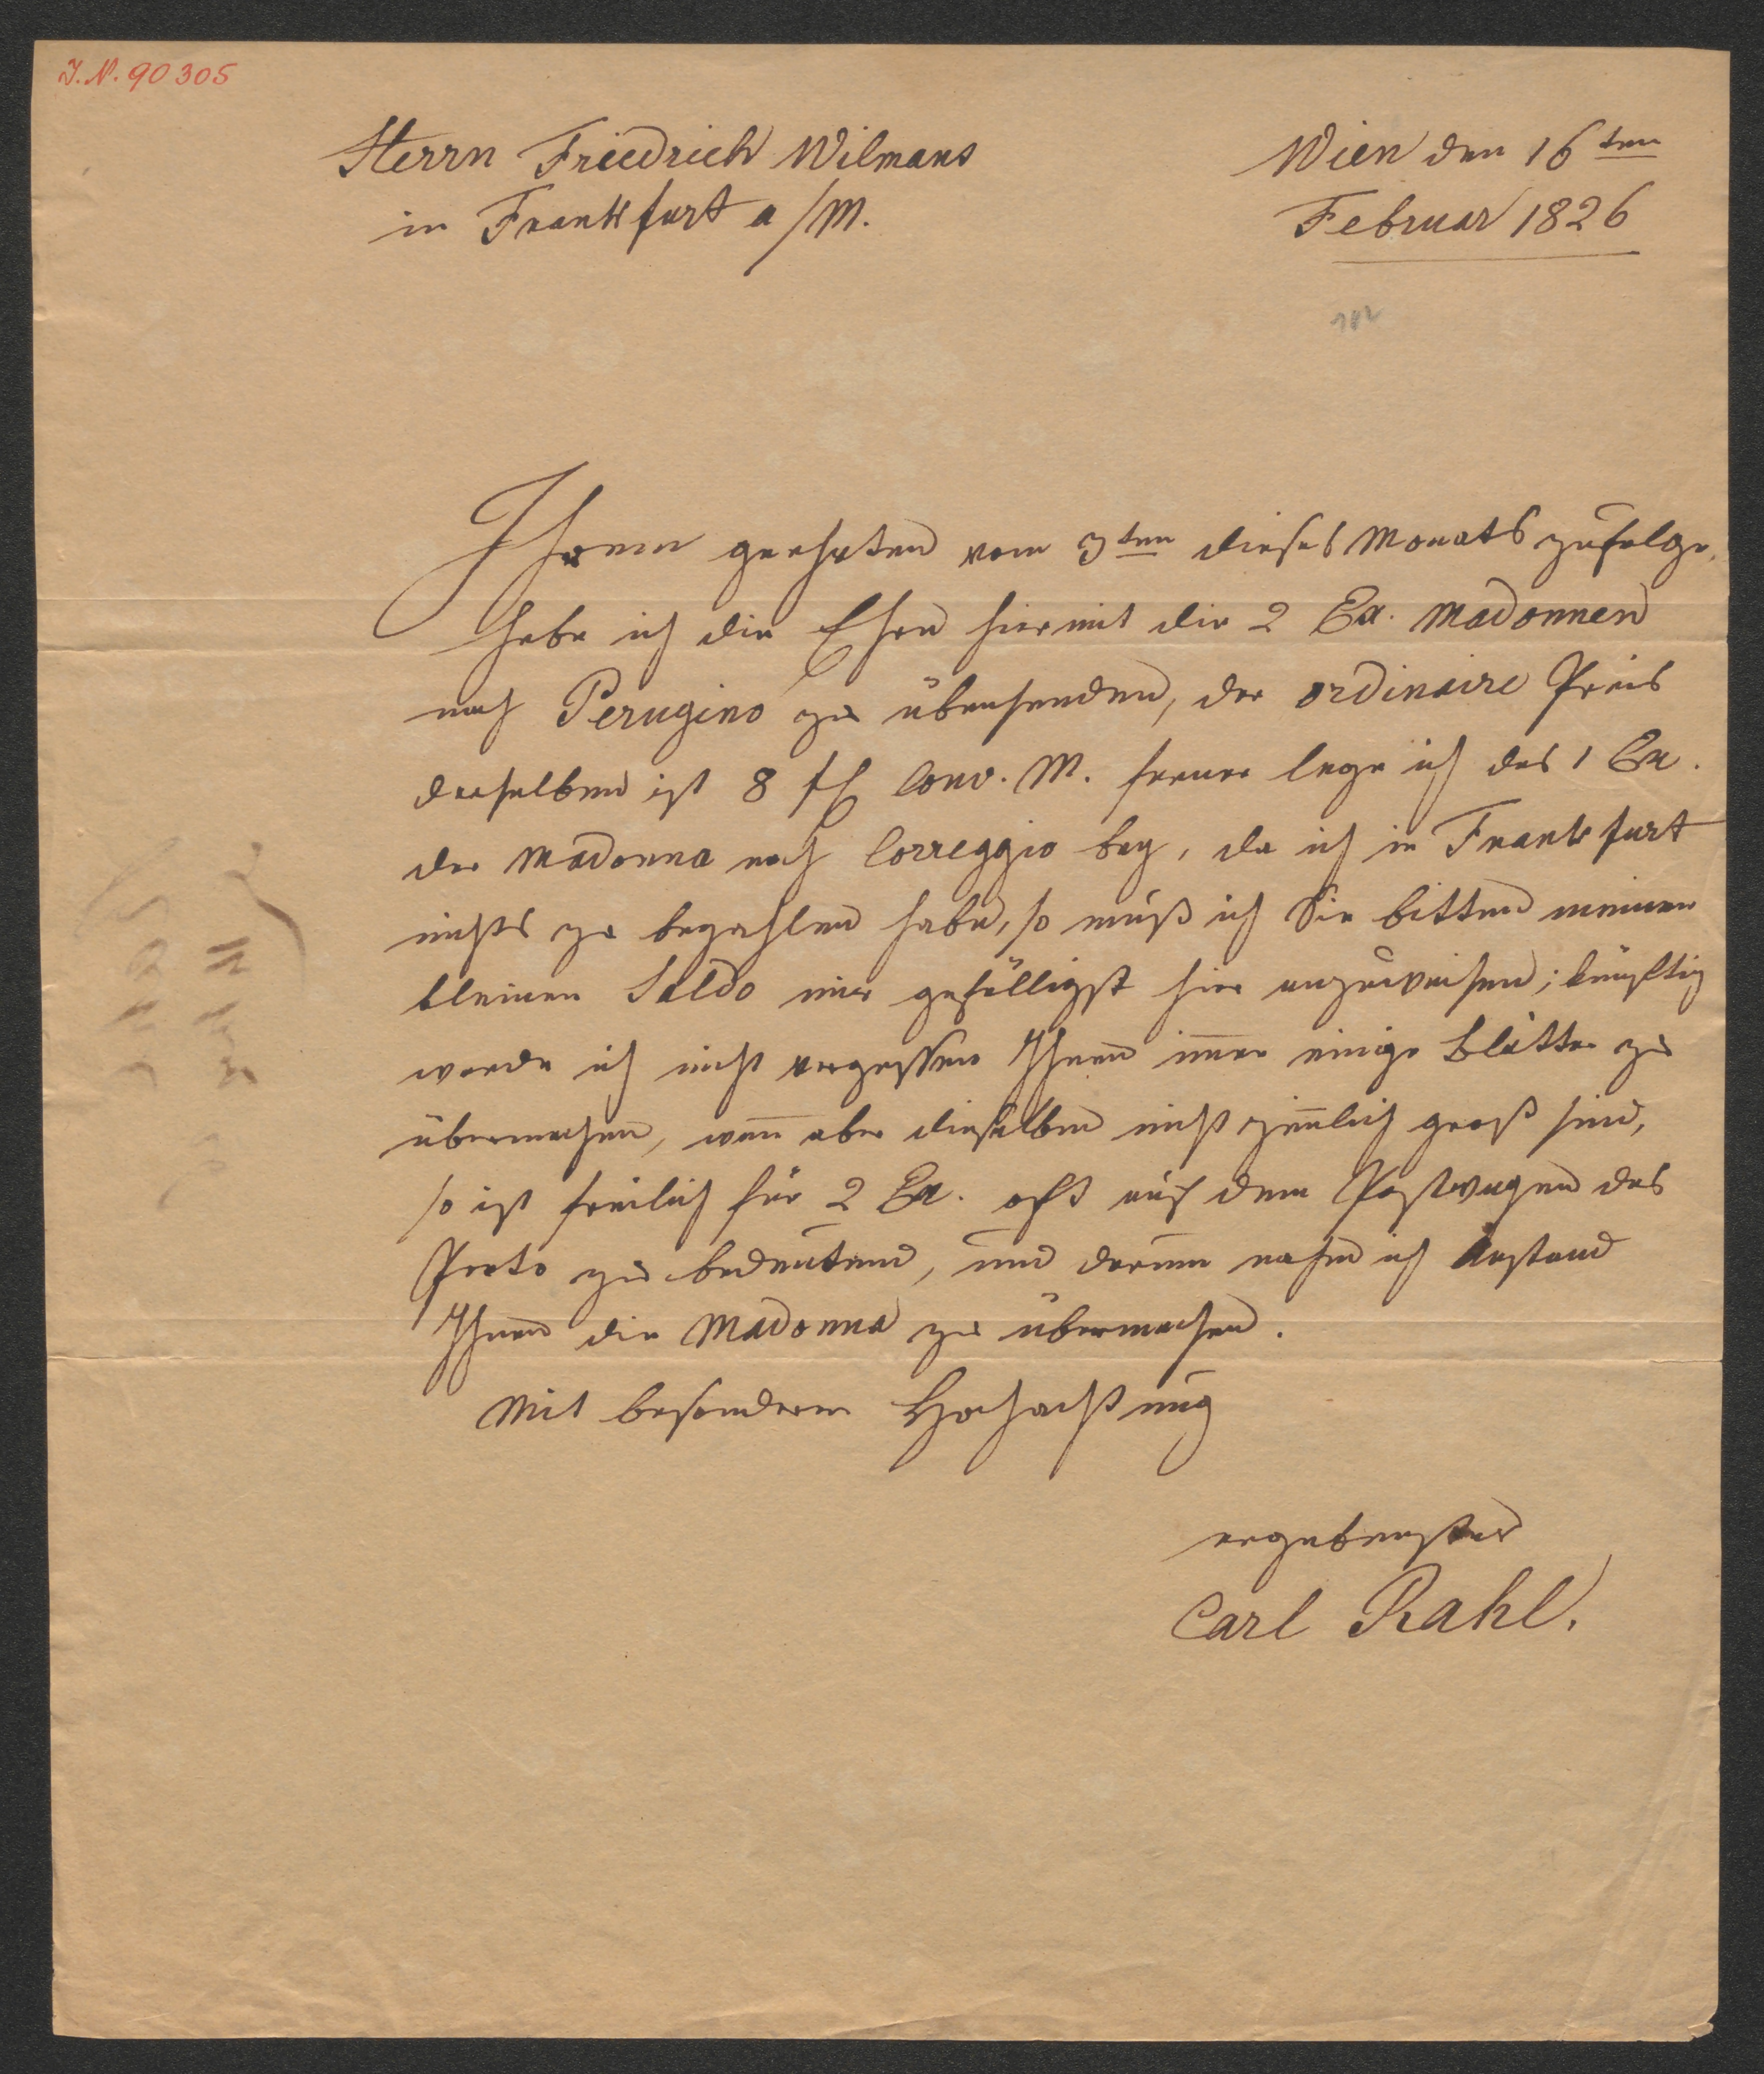 I.N. 90305
Herrn Friedrich Wilmans
in Frankfurt a/M.
Wien den 16ten
Februar 1826
Ihrem geehrten vom 3ten dieses Monats zufolge,
habe ich die Ehre hiermit die 2 Ex. Madonnen
nach Perugino zu übersenden, der ordinaire Preis
derselben ist 8 fl Conv. M. ferner lege ich das 1 Ex.
der Madonna nach Correggio bey, da ich in Frankfurt
nichts zu bezahlen habe, so muß ich Sie bitten meinen
kleinen Saldo mir gefälligst hier anzuweisen; künftig
werde ich nicht vergessen Ihnen im̅er einige Blätter zu
übermachen, wen̅ aber dieselben nicht zieml̅ich groß sind,
so ist freilich für 2 Ex. oft auf dem Postwagen das
Porto zu bedeutend, und darum nahm ich Anstand
Ihnen die Madonna zu übermachen.
Mit besonderer Hochachtung
ergebenster
Carl Rahl.